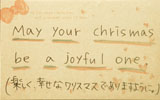 May your chrismas
be a joyful one.
(楽しい幸せなクリスマスでありますように。)